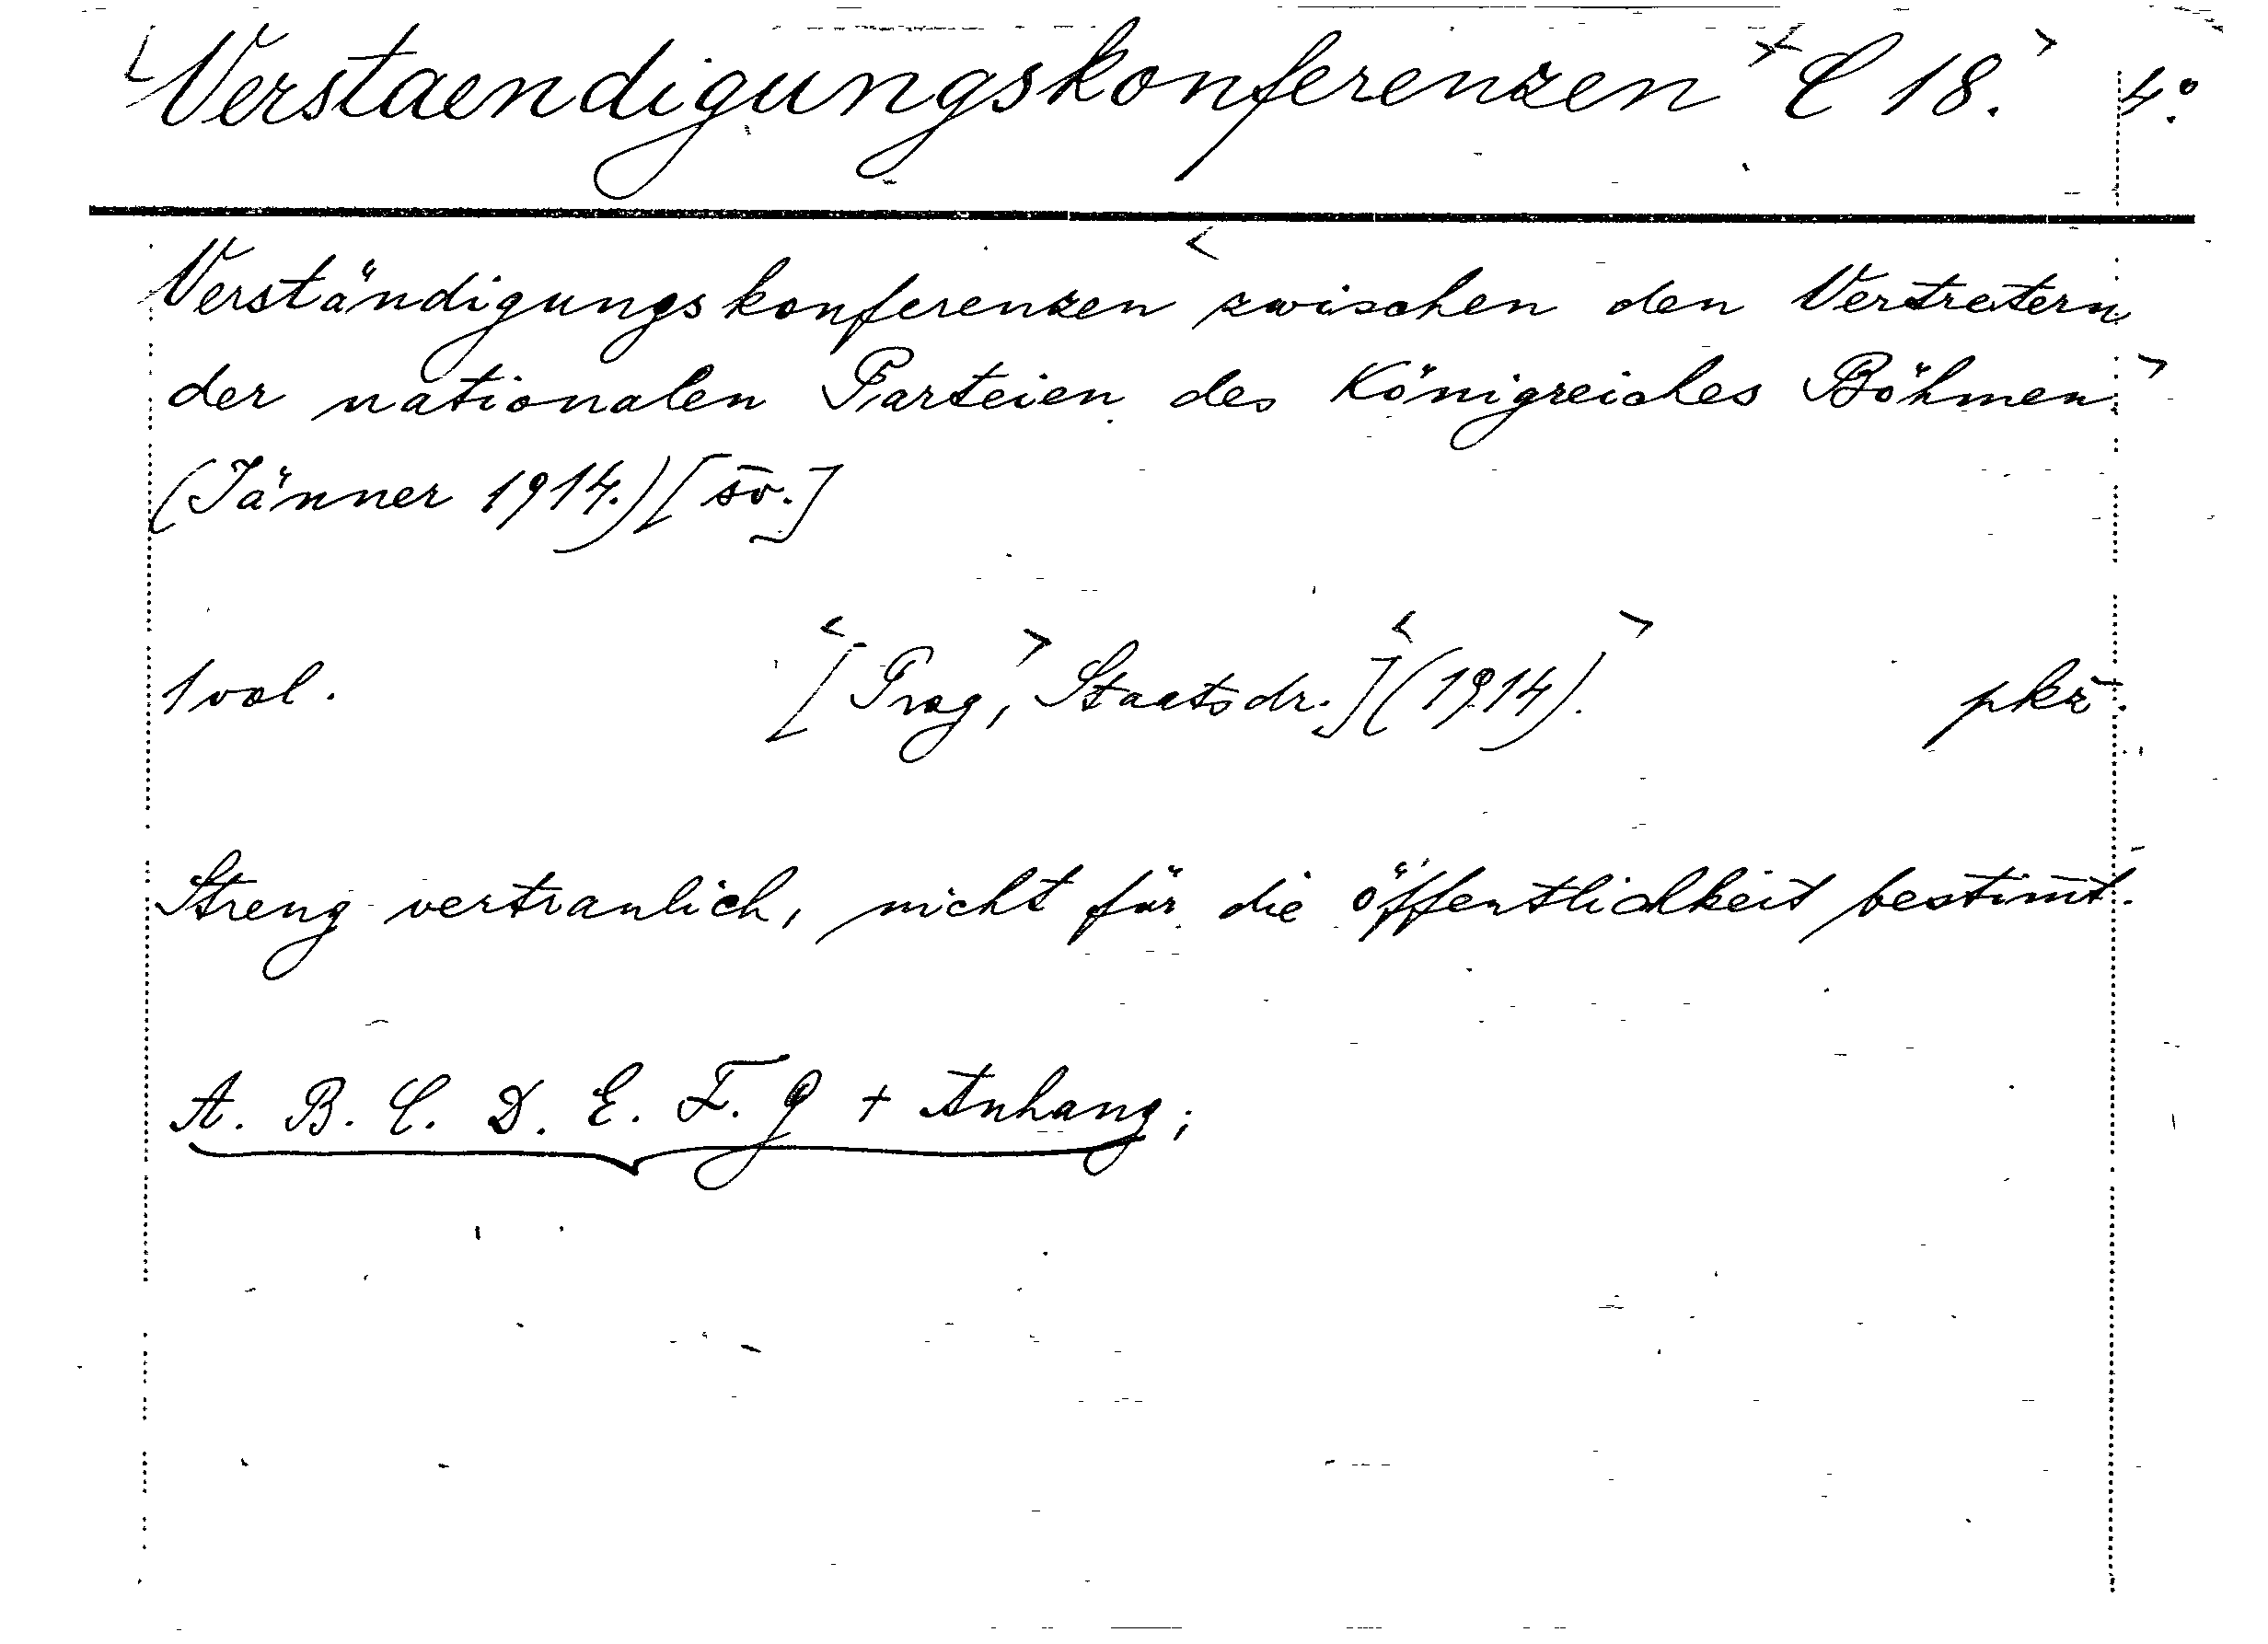 Verstaendigungskonferenzen + C 18. 4°.
Verständigungskonferenzen zwischen den Vertretern
der nationalen Parteien des Königreiches Böhmen
(Jänner 1914.) [sv̄.]
1 vol. [Prag, Staatsdr.] (1914). pkř.
Streng vertraulich, nicht für die öffentlichkeit bestim̄t.
A. B. C. D. E. F. G + Anhang;